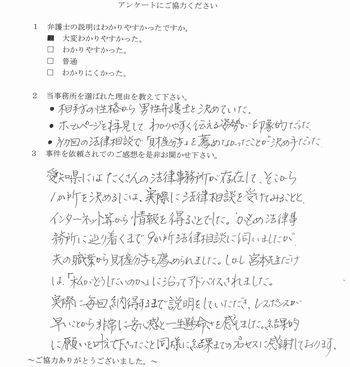 アンケートにご協力ください
1 弁護士の説明はわかりやすかったですか。
■ 大変わかりやすかった。
□ わかりやすかった。
□ 普通
□ わかりにくかった。
2 当事務所を選ばれた理由を教えて下さい。
・相手方の性格から男性弁護士と決めていた。
・ホームページを拝見して わかりやすく伝える姿勢が印象的だった
・初回の法律相談で「財産分与」を薦めなかったことが決め手だった
3 事件を依頼されてのご感想を是非お聞かせ下さい。
愛知県にはたくさんの法律事務所が存在して、そこから
1か所を決めるには、実際に法律相談を受けてみることと、
インターネット等から情報を得ることでした。の法律事
務所に辿り着くまで9か所法律相談に伺いましたが
夫の職業から財産分与を薦められました。しかし宮本先生だけ
は、「私がどうしたいのか」に沿ってアドバイスされました。
実際に毎回、納得するまで説明をしていただき、レスポンスが
早いことから非常に安心感と一生懸命さを感じました。結果的
に願いを叶えて下さったこと同様に、結果までのプロセスに感謝しております。
～ご協力ありがとうございました。～